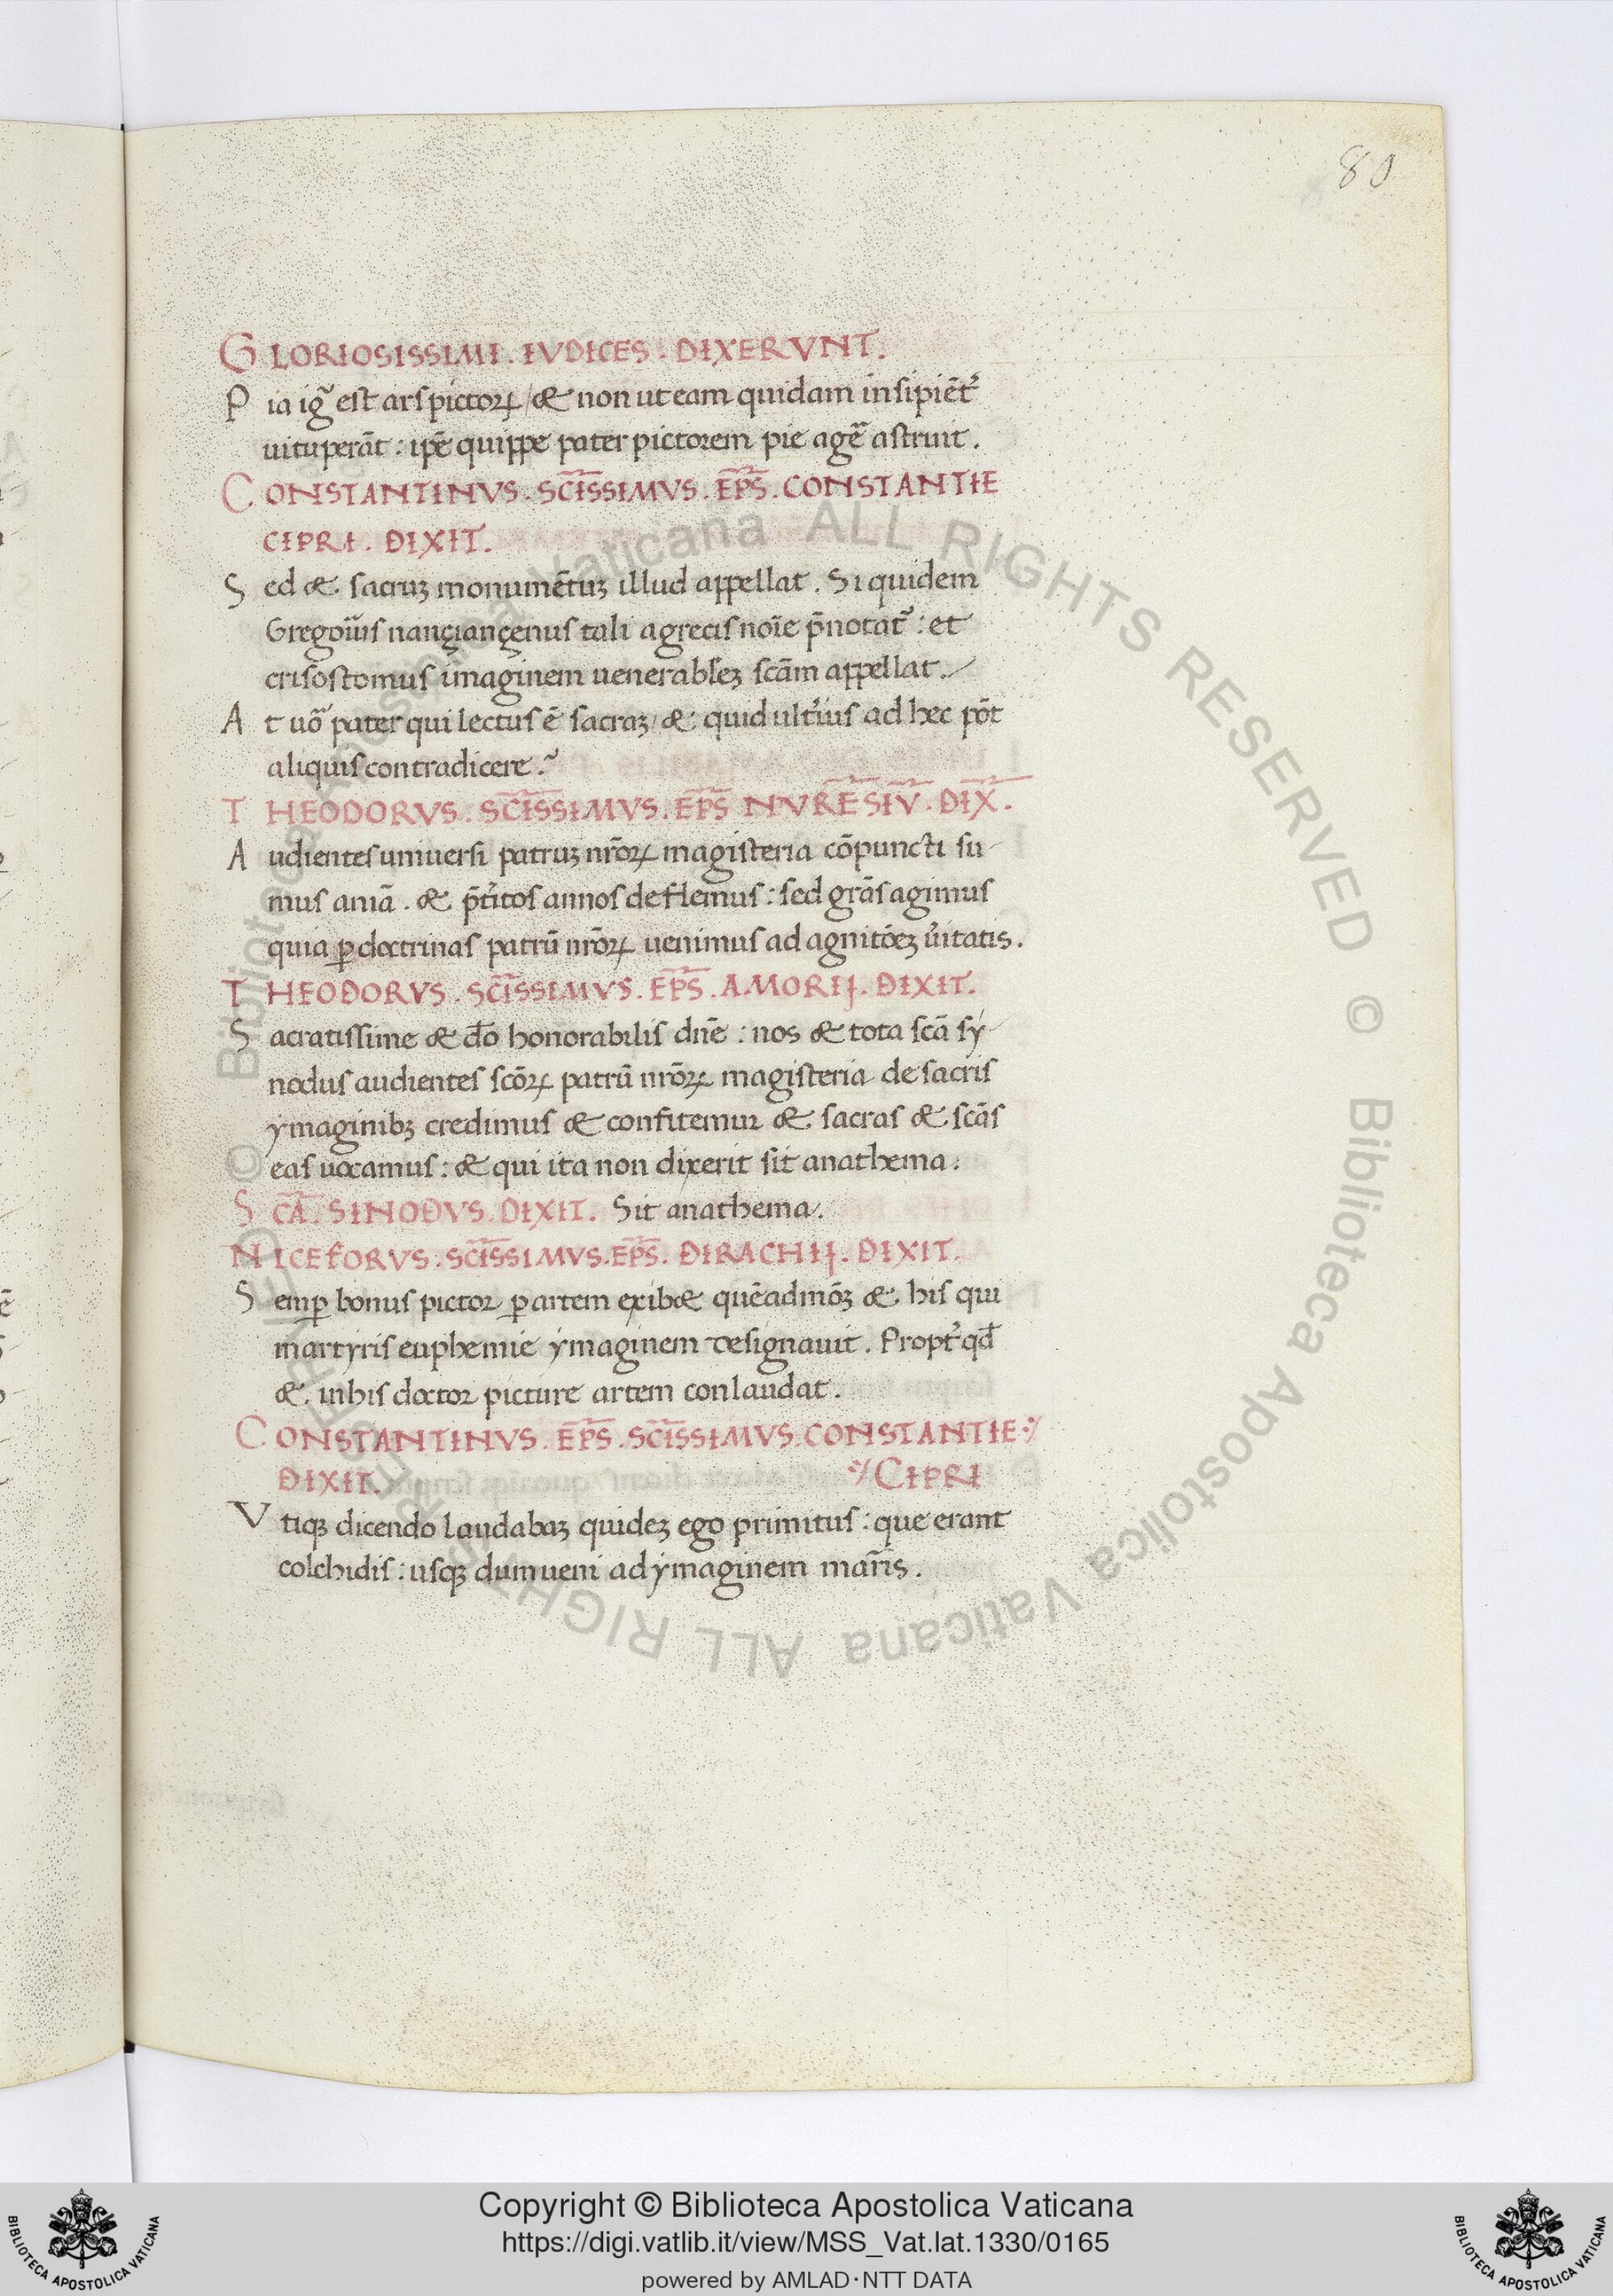 80
GLORIOSISSIMI. IVDICES. DIXERVNT.
Pia ig̃ est ars pictorꝝ / & non ut eam quidam insipiẽt᷑
uituperãt: ip̃e quippe pater pictorem pie ag̃e astruit.
CONSTANTINVS. SC̃ISSIMVS. EP̃S. CONSTANTIE
CIPRI. DIXIT.
Sed & sacruꝫ monumẽtuꝫ illud appellat. Si quidem
Gregoı̃us nançiançenus tali a grecis noı̃e p̃notat᷑: et
crisostomus imaginem uenerabileꝫ scãm appellat.
At uõ pater qui lectus ẽ sacraꝫ / & quid ult᷑ius ad hec põt
aliquis contradicere?
THEODORVS. SC̃ISSIMVS. EP̃S NVRESIṼ. DIX̃.
Audientes uniuersi patruꝫ nr̃oꝝ magisteria cõpuncti su-
mus aniã. & p̃t᷑itos annos deflemus: sed gr̃as agimus
quia ꝑ doctrinas patrũ nr̃oꝝ uenimus ad agnitõeꝫ u᷑itatis.
THEODORVS. SC̃ISSIMVS. EP̃S. AMORIJ. DIXIT.
Sacratissime & do̅ honorabilis dñe: nos & tota scã sy-
nodus audientes scõꝝ patrũ nr̃oꝝ magisteria de sacris
ymaginibꝫ credimus & confitemur & sacras & scãs
eas uocamus: & qui ita non dixerit sit anathema.
SCÃ. SINODVS. DIXIT. Sit anathema.
NICEFORVS. SC̃ISSIMVS. EP̃S. DIRACHIJ. DIXIT.
Semꝑ bonus pictor ꝑ artem exib& quẽadmõꝫ & his qui
martyris euphemie ymaginem designauit. Propt᷑ qđ
& in his doctor picture artem conlaudat.
CONSTANTINVS. EP̃S. SC̃ISSIMVS. CONSTANTIE
DIXIT. CIPRI
Vtiqꝫ dicendo laudabaꝫ quideꝫ ego primitus: que erant
colchidis: usqꝫ dum ueni ad ymaginem mar̃is.
© Biblioteca Apostolica Vaticana ALL RIGHTS RESERVED © Biblioteca Apostolica Vaticana ALL RIGHTS RESERVED
Copyright © Biblioteca Apostolica Vaticana
https://digi.vatlib.it/view/MSS_Vat.lat.1330/0165
powered by AMLAD･NTT DATA
BIBLIOTECA APOSTOLICA VATICANA
BIBLIOTECA APOSTOLICA VATICANA